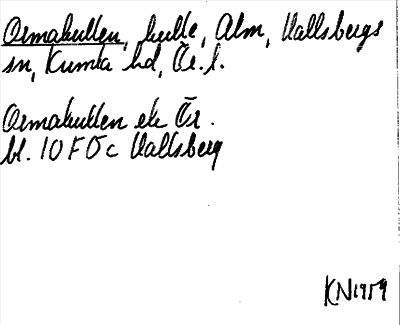 Ormakullen, kulle, Alm, Hallsbergs
sn, Kumla hd, Ör. l.
Ormakullen ek Ör.
bl. 10F Ö c Hallsberg
KN 1959